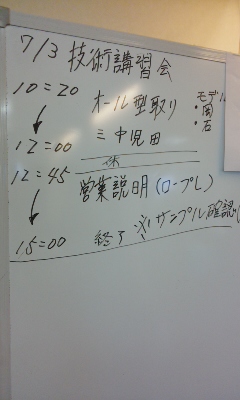 7/3 技術講習会
10=20 オール型取り モデル
・岡
↓ 三中児田 ・石
12=00
休
12=45
↓ 営業説明(ロープレ)
15=00 終了 ※サンプル確認